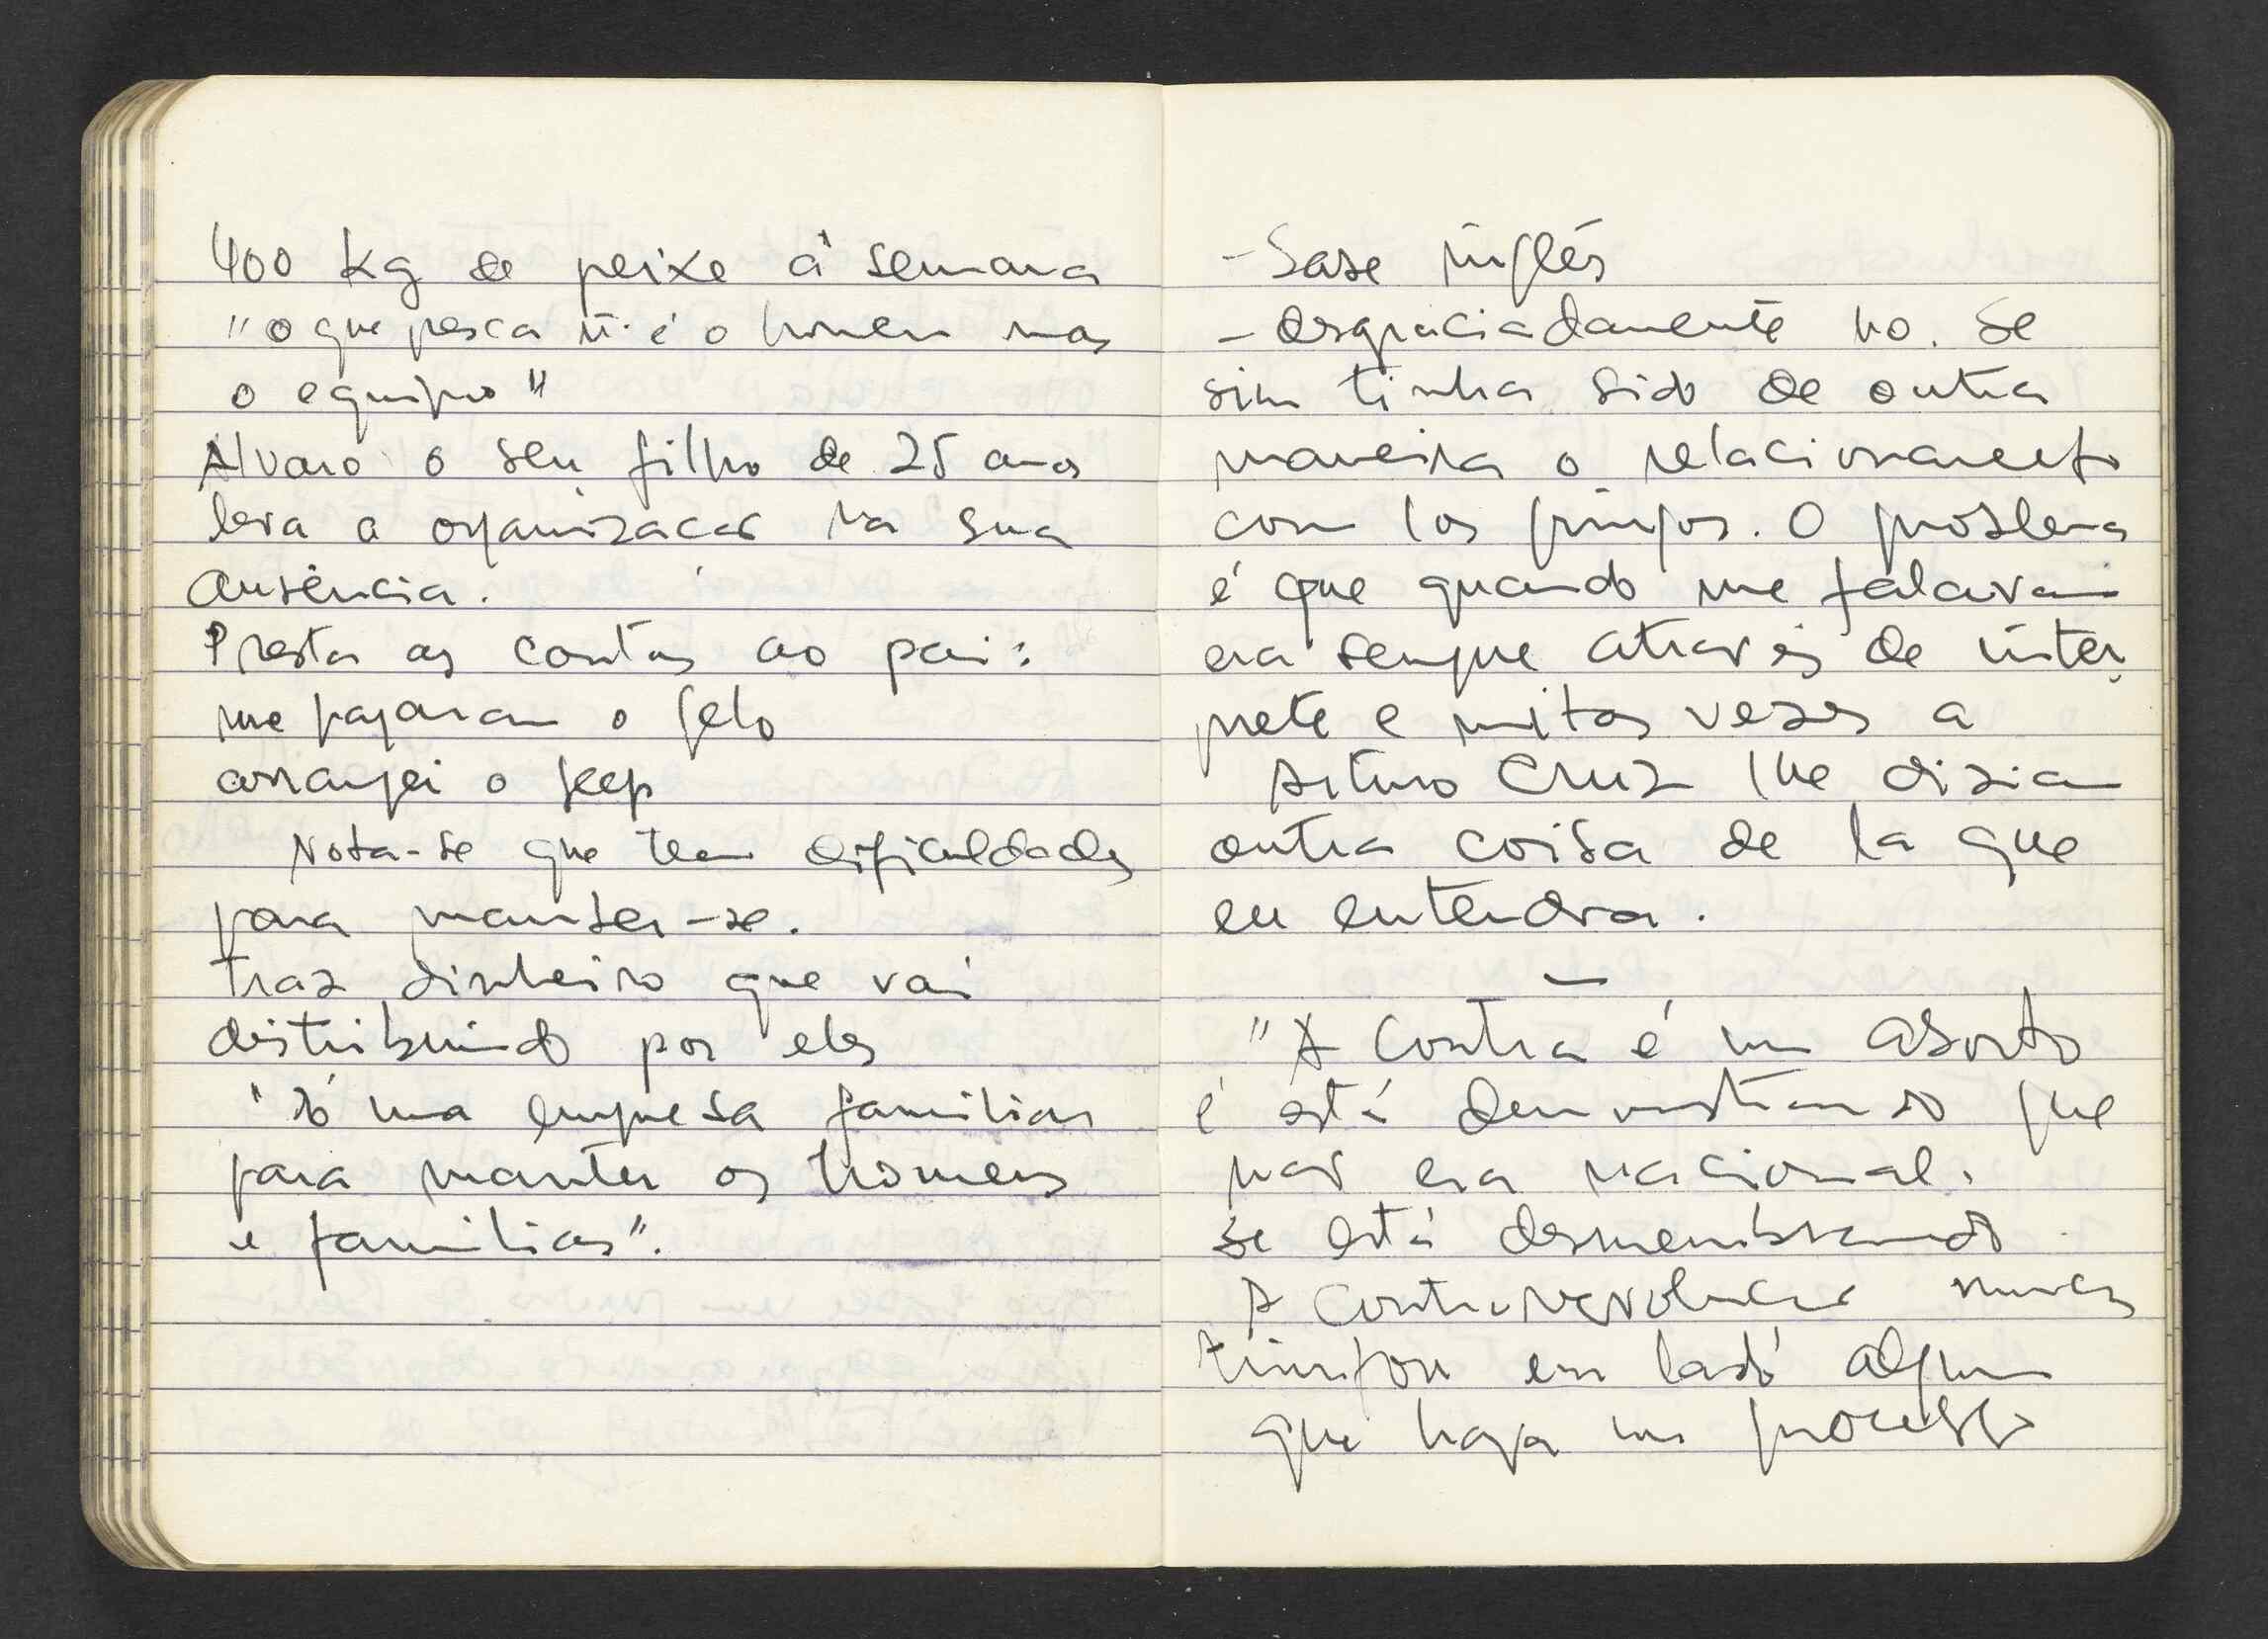 400 kg de peixe à semana
"o que pesca ñ é o homem mas
o equipo"
Alvaro o seu filho de 25 anos
leva a organizacao na sua
ausência.
Presta as contas ao pai:
me pagaram o gelo
arranjei o jeep
Nota-se que tem dificuldades
para manter-se.
traz dinheiro que vai
distribuindo por eles
"só uma empresa familiar
para manter os homens
e familias".
- Sabe inglés
- desgraciadamente no. Se
sim tinha sido de outra
maneira o relacionamento
com los gringos. O problema
é que quando me falavam
era sempre através de inter
prete e muitas vezes a
Arturo Cruz lhe diziam
outra coisa de la que
eu entendia.
—
"A Contra é um aborto
é está demonstrando que
nao era nacional.
se está desmembrando
A Contrarevolucao nunca
triunfou em lado algum
que haja um processo